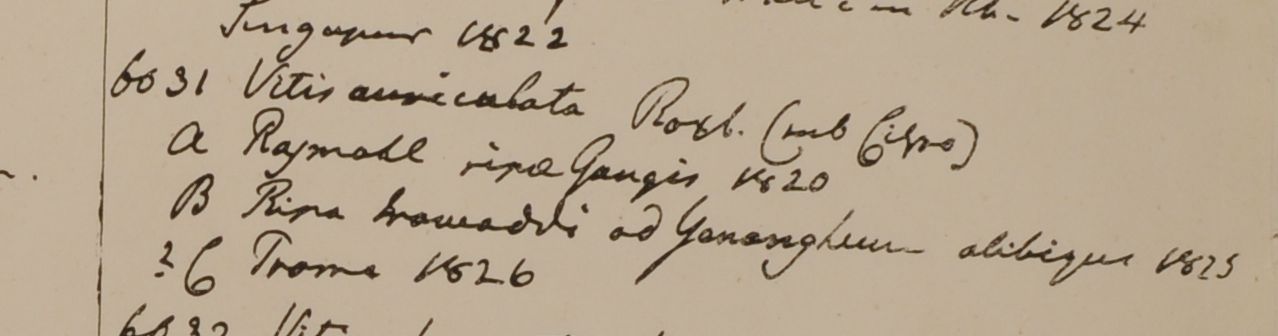 1824
Singapur 1822
6031 Vitis auriculata Roxb. (sub Cisso)
A Rajmahl ripa Gangis 1820
B Ripa Irawaddi ad Yenangheum alibique 1825
? C Prome 1826
6032 Vitis